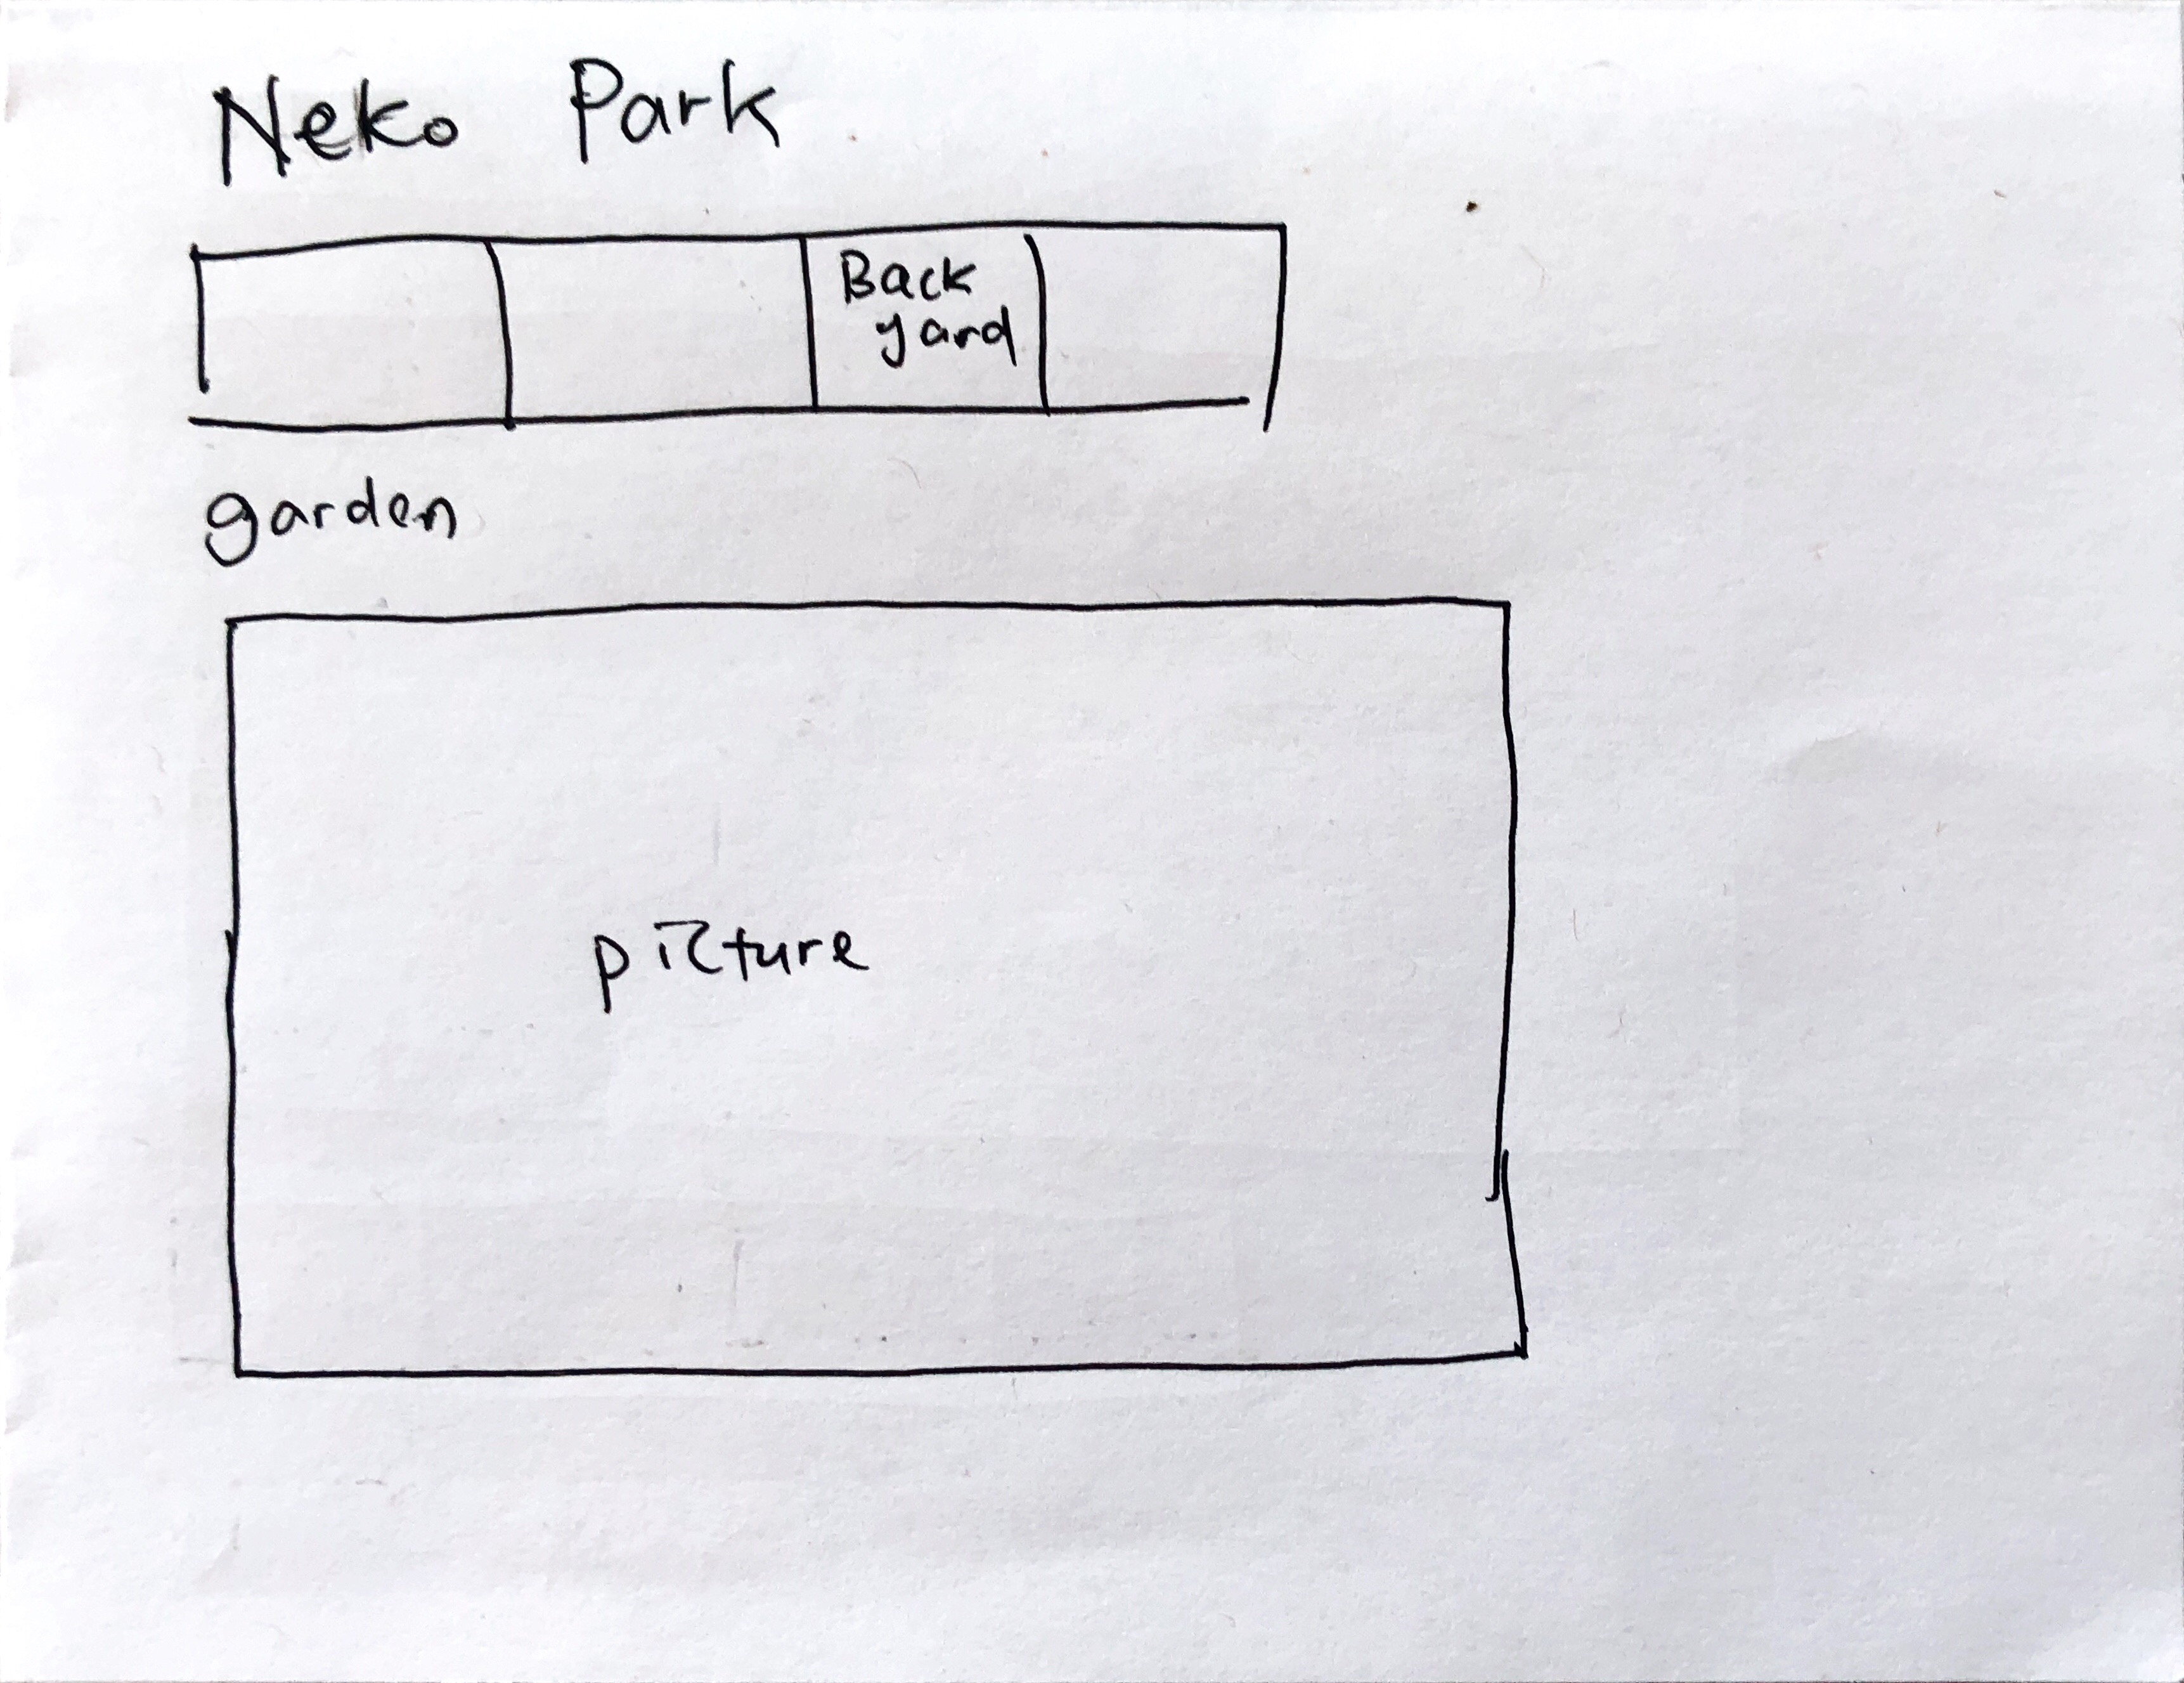 Neko Park
Back
yard
garden
picture